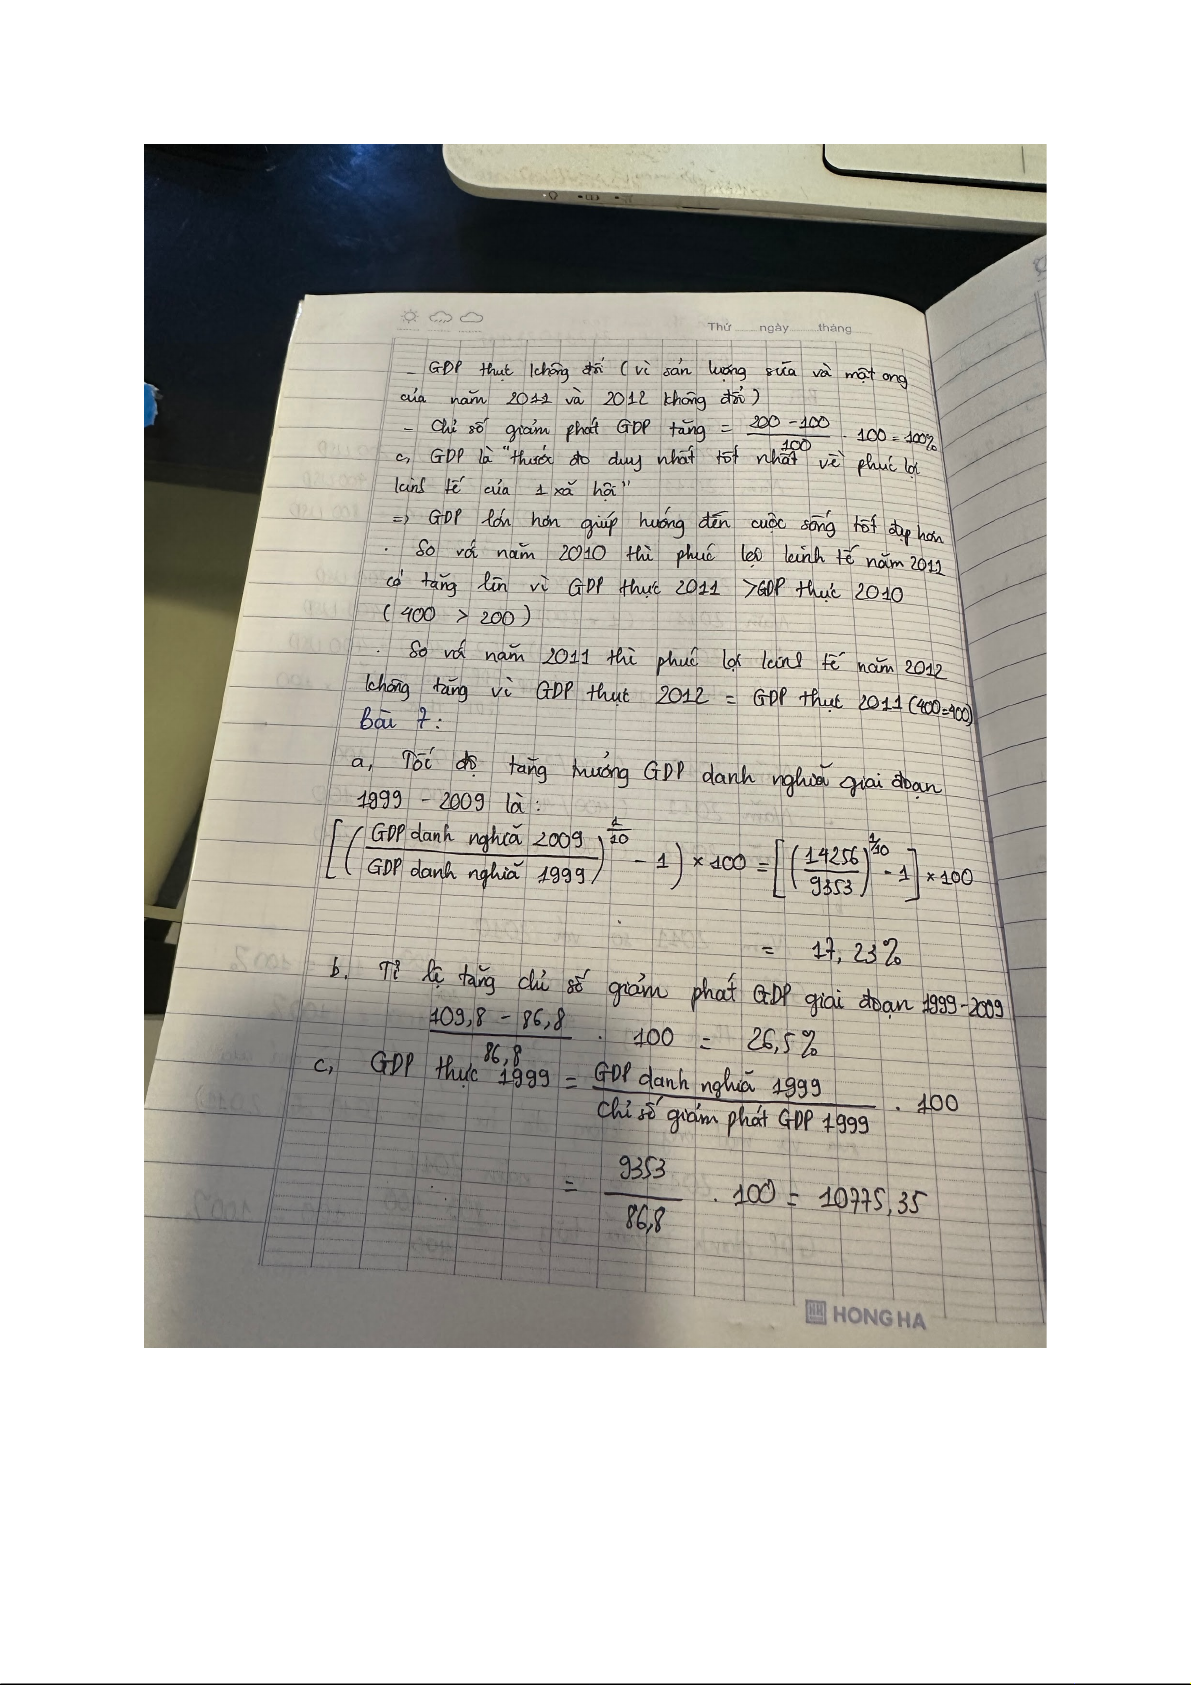 Thứ ngày tháng
- GDP thực không đổi (vì sản lượng sữa và mật ong
của năm 2011 và 2012 không đổi)
- Chỉ số giảm phát GDP tăng = (200 - 100)/100 · 100 = 100%
c, GDP là "thước đo duy nhất tốt nhất về phúc lợi
kinh tế của 1 xã hội"
=> GDP lớn hơn giúp hướng đến cuộc sống tốt đẹp hơn
· So với năm 2010 thì phúc lợi kinh tế năm 2011
có tăng lên vì GDP thực 2011 > GDP thực 2010
(400 > 200)
· So với năm 2011 thì phúc lợi kinh tế năm 2012
không tăng vì GDP thực 2012 = GDP thực 2011 (400=400)
Bài 7:
a, Tốc độ tăng trưởng GDP danh nghĩa giai đoạn
1999 - 2009 là:
[((GDP danh nghĩa 2009)/(GDP danh nghĩa 1999))^(1/10) - 1) × 100 = [(14256/9353)^(1/10) - 1] × 100
= 17,23%
b. Tỉ lệ tăng chỉ số giảm phát GDP giai đoạn 1999-2009
(109,8 - 86,8)/86,8 · 100 = 26,5%
c, GDP thực 1999 = (GDP danh nghĩa 1999)/(Chỉ số giảm phát GDP 1999) · 100
= 9353/86,8 · 100 = 10775,35
HONG HA